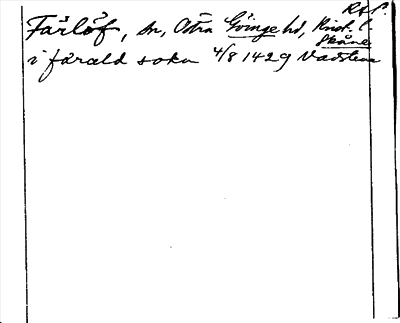 RAP.
Färlöf, sn, Östra Göinge hd, Krist. l.
Skåne
i färald sokn 4/8 1429 Vadstena